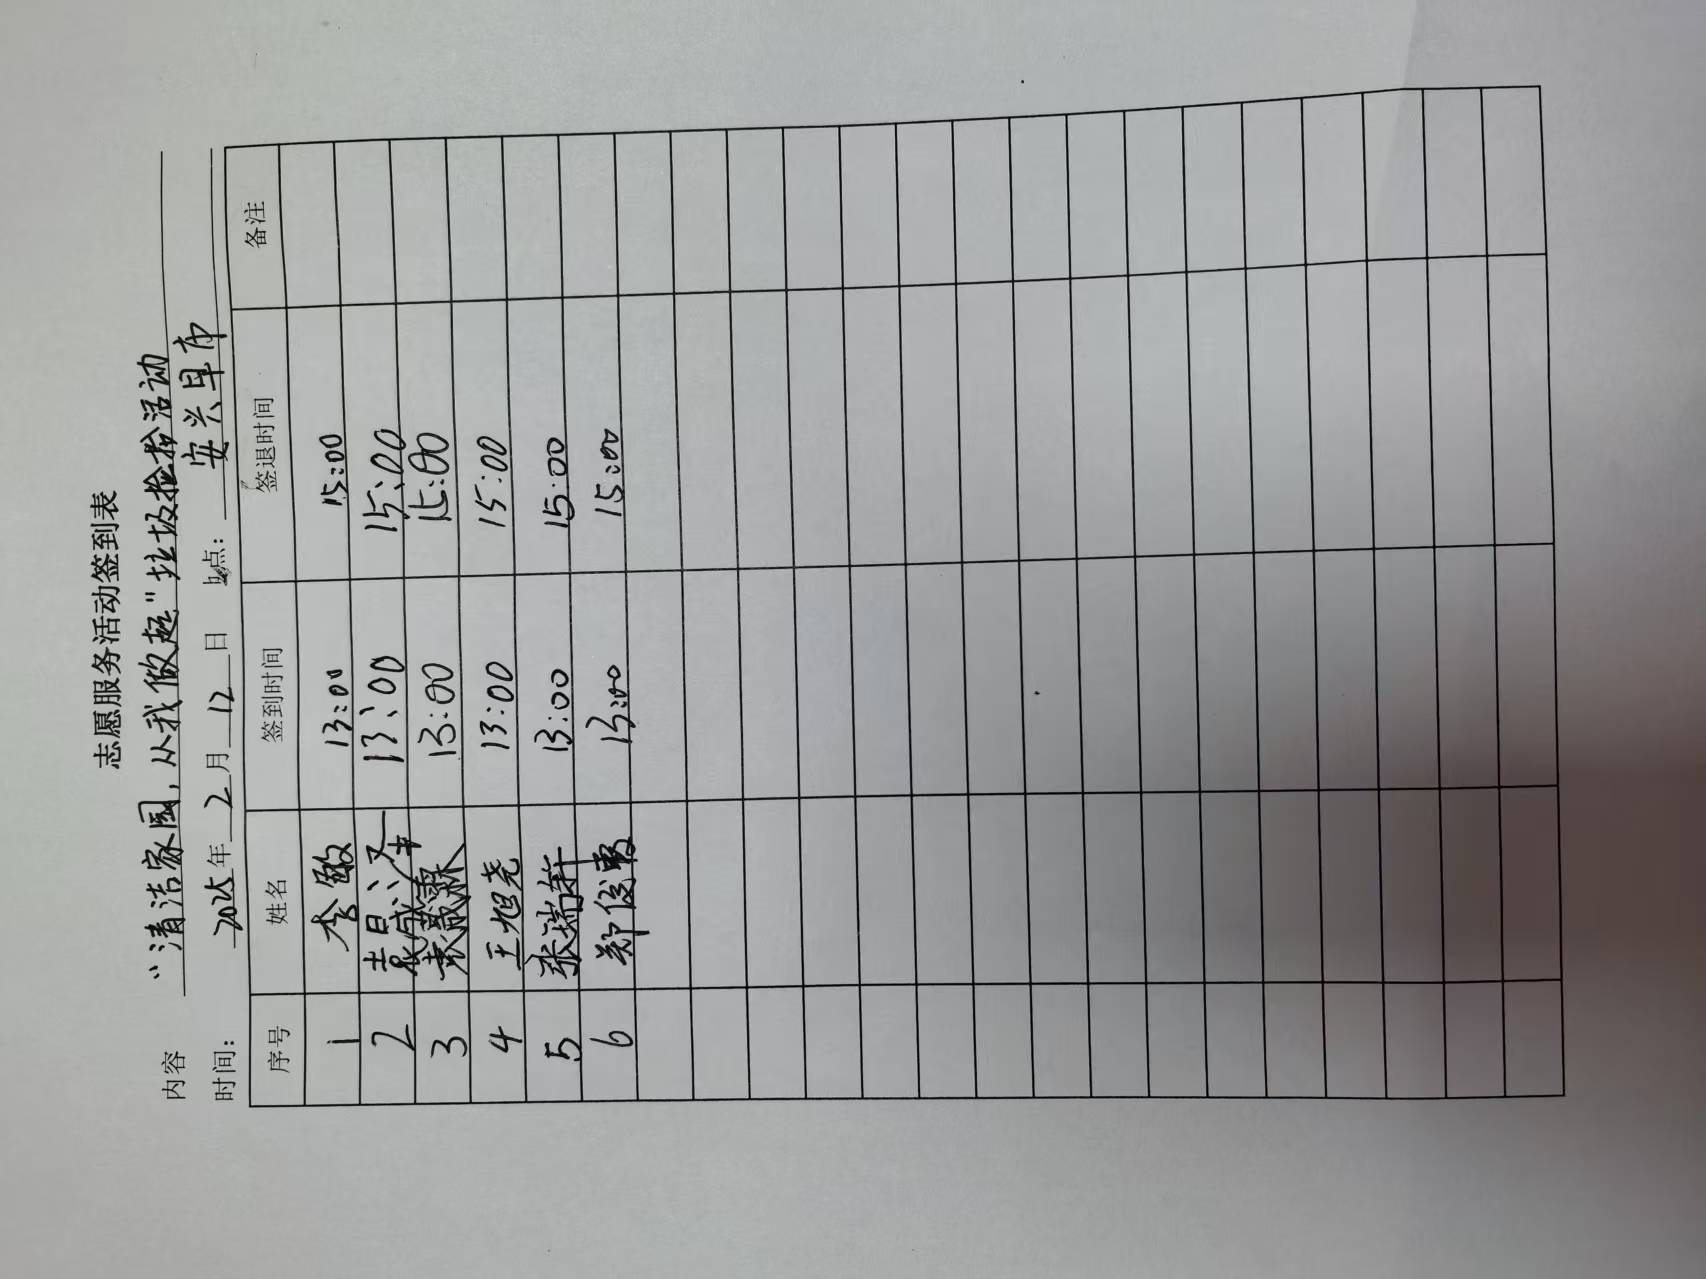 志愿服务活动签到表
内容 “清洁家园，从我做起”垃圾捡拾活动
时间： 2025年 2月 12日 地点： 安兴早市
序号 姓名 签到时间 签退时间 备注
1 李敏 13:00 15:00
2 13:00 15:00
3 13:00 15:00
4 王旭尧 13:00 15:00
5 张瑞轩 13:00 15:00
6 郑俊 13:00 15:00